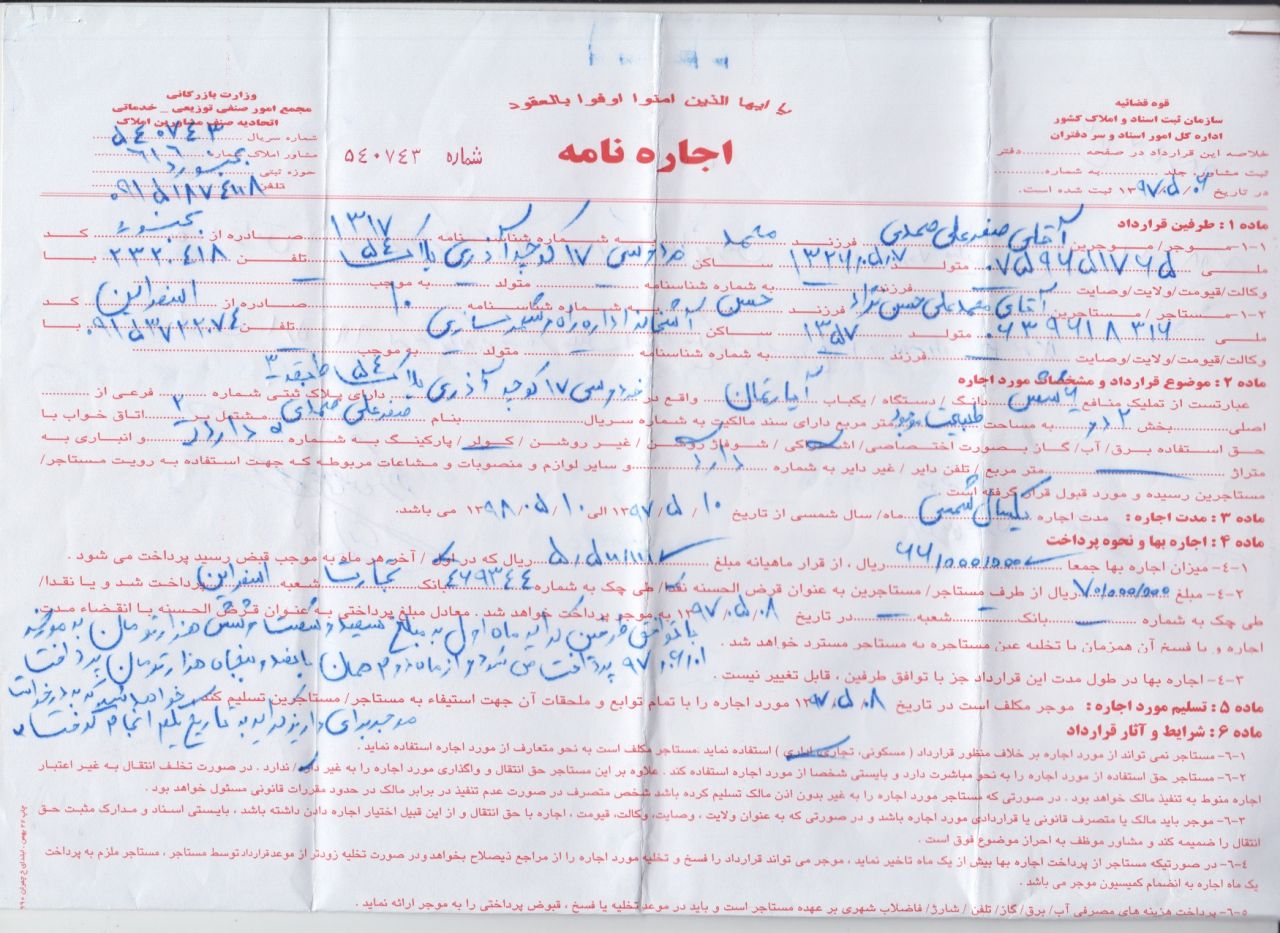 یا ایها الذین امنوا اوفوا بالعقود
قوه قضائیه
سازمان ثبت اسناد و املاک کشور
اداره کل امور اسناد و سر دفتران
خلاصه این قرارداد در صفحه ............ دفتر
ثبت مشاور، جلد ........ به شماره ........
در تاریخ ۱۳۹۷/۰۵/۰۶ ثبت شده است.
اجاره نامه
شماره ۵۴۰۷۴۳
وزارت بازرگانی
مجمع امور صنفی توزیعی _ خدماتی
اتحادیه صنف مشاورین املاک
شماره سریال ۵۴۰۷۴۳
مشاور املاک شماره ۶۱۶
حوزه ثبتی بجنورد
تلفن ۰۹۱۵۱۸۷۴۱۱۸
ماده ۱ : طرفین قرارداد
۱-۱- موجر/ موجرین آقای صفدر علی صمدی فرزند محمد به شماره شناسنامه ۱۳۱۷ صادره از بجنورد کد
ملی ۰۷۵۹۶۵۱۷۶۵ متولد ۱۳۲۶/۰۵/۰۷ ساکن فردوسی ۱۷ کوچه آذری پلاک ۵۴ تلفن ۳۲۲۰۴۱۸ با
وکالت/قیومت/ولایت/وصایت ........ فرزند ........ به شماره شناسنامه ........ متولد ........ به موجب ........
۱-۲- مستاجر / مستاجرین آقای محمد علی حسن نژاد فرزند حسن به شماره شناسنامه ۱۰ صادره از اسفراین کد
ملی ۰۶۳۹۶۱۸۳۱۶ متولد ۱۳۵۷ ساکن اداره راه و شهرسازی تلفن ۰۹۱۵۳۷۲۲۰۷۴ با
وکالت/قیومت/ولایت/وصایت ........ فرزند ........ به شماره شناسنامه ........ متولد ........ به موجب ........
ماده ۲ : موضوع قرارداد و مشخصات مورد اجاره
عبارتست از تملیک منافع شش دانگ / دستگاه / یکباب آپارتمان واقع در فردوسی ۱۷ کوچه آذری پلاک ۵۴ طبقه ۳ دارای پلاک ثبتی شماره ........ فرعی از ........
اصلی ........ بخش ۲ به مساحت ........ متر مربع دارای سند مالکیت به شماره سریال ........ بنام صفدر علی صمدی مشتمل بر ۲ اتاق خواب با
حق استفاده برق/ آب/ گاز بصورت اختصاصی/ اشتراکی / شوفاژ روشن / غیر روشن / کولر / پارکینگ به شماره ........ و انباری به
متراژ ........ متر مربع / تلفن دایر / غیر دایر به شماره ........ و سایر لوازم و منصوبات و مشاعات مربوطه که جهت استفاده به رویت مستاجر/
مستاجرین رسیده و مورد قبول قرار گرفته است .
ماده ۳ : مدت اجاره : مدت اجاره یکسال شمسی ماه/ سال شمسی از تاریخ ۱۳۹۷/۵/۱۰ الی ۱۳۹۸/۰۵/۱۰ می باشد.
ماده ۴ : اجاره بها و نحوه پرداخت
۴-۱- میزان اجاره بها جمعا ۶۶/۰۰۰/۰۰۰ ریال ، از قرار ماهیانه مبلغ ........ ریال که در اول / آخر هر ماه به موجب قبض رسید پرداخت می شود .
۴-۲- مبلغ ۷۰/۰۰۰/۰۰۰ ریال از طرف مستاجر/ مستاجرین به عنوان قرض الحسنه نقدا/ طی چک به شماره ۴۶۹۳۴۴ بانک تجارت شعبه اسفراین پرداخت شد و یا نقدا/
طی چک به شماره ........ بانک ........ شعبه ........ در تاریخ ۱۳۹۷/۰۵/۰۸ به موجر پرداخت خواهد شد . معادل مبلغ پرداختی به عنوان قرض الحسنه با انقضاء مدت
اجاره و یا فسخ آن همزمان با تخلیه عین مستاجره به مستاجر مسترد خواهد شد .
۴-۳- اجاره بها در طول مدت این قرارداد جز با توافق طرفین ، قابل تغییر نیست .
با توافق طرفین کرایه ماه اول به مبلغ سیصد و شصت و شش هزار تومان به مورخه
۹۷/۶/۰۱ پرداخت می شود و از ماه دوم همان پانصد و پنجاه هزار تومان پرداخت
خواهد شد که به درخواست
موجر برای واریز کرایه به تاریخ یکم انجام گرفت
ماده ۵ : تسلیم مورد اجاره : موجر مکلف است در تاریخ ۱۳۹۷/۵/۰۸ مورد اجاره را با تمام توابع و ملحقات آن جهت استیفاء به مستاجر/ مستاجرین تسلیم کند .
ماده ۶ : شرایط و آثار قرارداد
۶-۱- مستاجر نمی تواند از مورد اجاره بر خلاف منظور قرارداد ( مسکونی، تجاری، اداری ) استفاده نماید . مستاجر مکلف است به نحو متعارف از مورد اجاره استفاده نماید .
۶-۲- مستاجر حق استفاده از مورد اجاره را به نحو مباشرت دارد و بایستی شخصا از مورد اجاره استفاده کند . علاوه بر این مستاجر حق انتقال و واگذاری مورد اجاره را به غیر دارد/ ندارد . در صورت تخلف انتقال به غیر اعتبار
اجاره منوط به تنفیذ مالک خواهد بود . در صورتی که مستاجر مورد اجاره را به غیر بدون اذن مالک تسلیم کرده باشد شخص متصرف در صورت عدم تنفیذ در برابر مالک در حدود مقررات قانونی مسئول خواهد بود .
۶-۳- موجر باید مالک یا متصرف قانونی یا قراردادی مورد اجاره باشد و در صورتی که به عنوان ولایت ، وصایت، وکالت، قیومت ، اجاره با حق انتقال و از این قبیل اختیار اجاره دادن داشته باشد ، بایستی اسناد و مدارک مثبت حق
انتقال را ضمیمه کند و مشاور موظف به احراز موضوع فوق است .
۶-۴- در صورتیکه مستاجر از پرداخت اجاره بها بیش از یک ماه تاخیر نماید ، موجر می تواند قرارداد را فسخ و تخلیه مورد اجاره را از مراجع ذیصلاح بخواهد ودر صورت تخلیه زودتر از موعدقرارداد توسط مستاجر ، مستاجر ملزم به پرداخت
یک ماه اجاره به انضمام کمیسیون موجر می باشد .
۶-۵- پرداخت هزینه های مصرفی آب/ برق/ گاز/ تلفن / شارژ/ فاضلاب شهری بر عهده مستاجر است و باید در موعد تخلیه یا فسخ ، قبوض پرداختی را به موجر ارائه نماید .